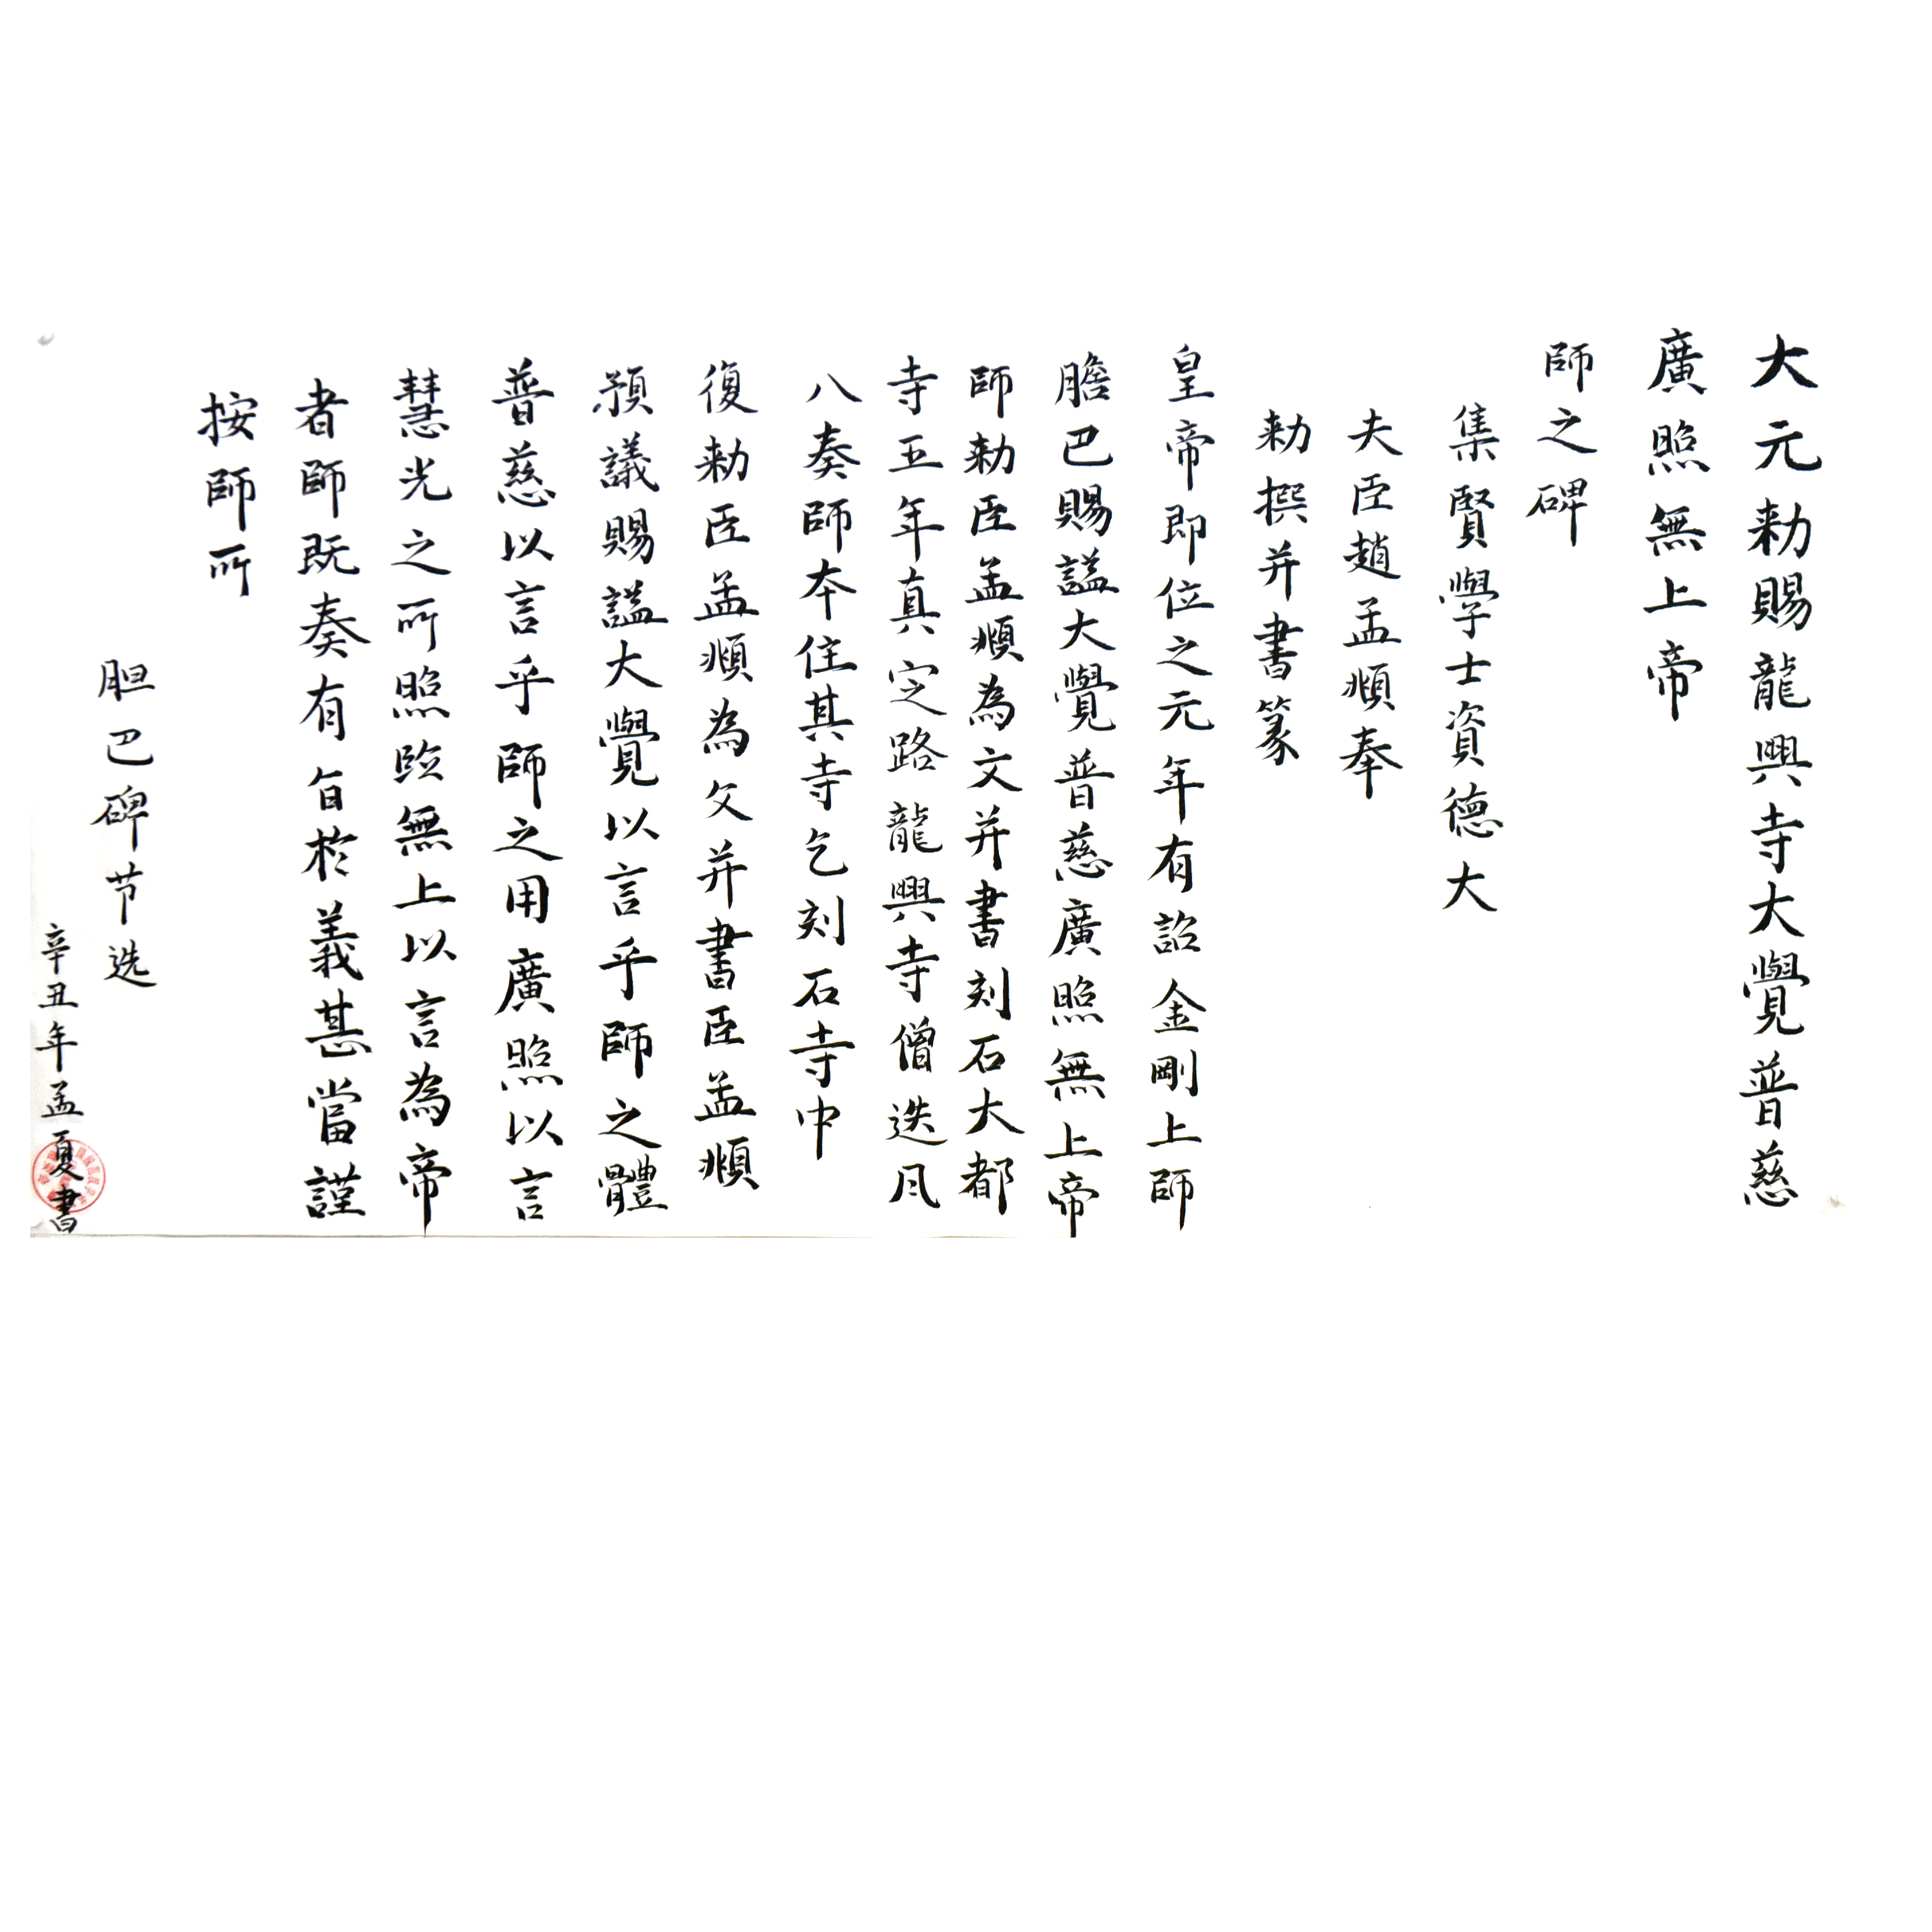 大元勅賜龍興寺大覺普慈
廣照無上帝
師之碑
集賢學士資德大
夫臣趙孟頫奉
勅撰并書篆
皇帝即位之元年有詔金剛上師
膽巴賜謚大覺普慈廣照無上帝
師勅臣孟頫為文并書刻石大都
寺五年真定路龍興寺僧迭凡
八奏師本住其寺乞刻石寺中
復勅臣孟頫為文并書臣孟頫
預議賜謚大覺以言乎師之體
普慈以言乎師之用廣照以言
慧光之所照臨無上以言為帝
者師既奏有旨於義甚當謹
按師所
胆巴碑节选
辛丑年孟夏書